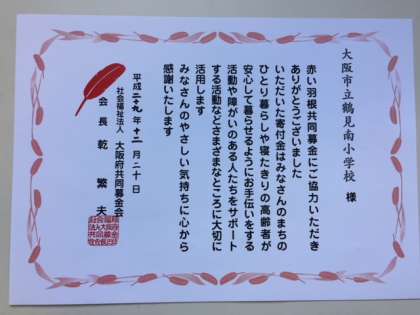 大阪市立鶴見南小学校　様
赤い羽根共同募金にご協力いただき
ありがとうございました
いただいた寄付金はみなさんのまちの
ひとり暮らしや寝たきりの高齢者が
安心して暮らせるようにお手伝いをする
活動や障がいのある人たちをサポート
する活動などさまざまなところに大切に
活用します
みなさんのやさしい気持ちに心から
感謝いたします
平成二十九年十二月二十日
社会福祉法人　大阪府共同募金会
会長　乾　繁夫